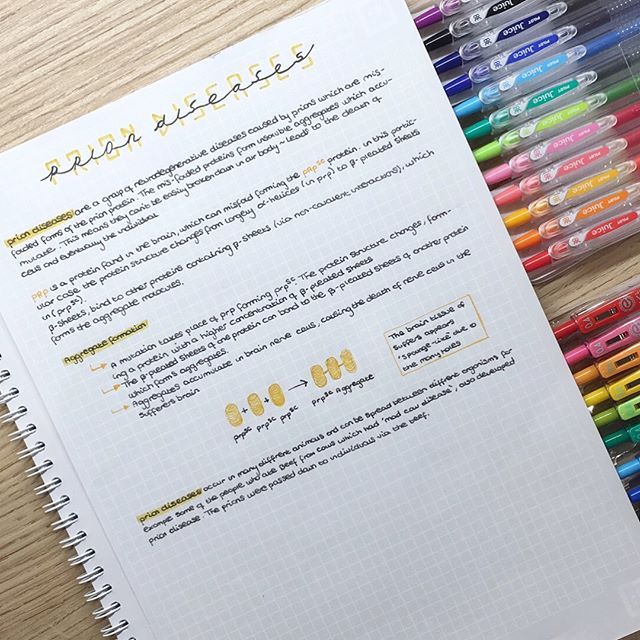 PRION DISEASES
prion diseases
prion diseases are a group of neurodegenerative diseases caused by prions which are mis-
folded forms of the prion protein. The mis-folded proteins form insoluble aggregates which accu-
mulate. This means they can't be easily broken down in our body - leads to the death of
cells and eventually the individual
PrP is a protein found in the brain, which can misfold forming the PrPSC protein. In this partic-
ular case the protein structure changes from longely α-helices (in PrP) to β-pleated sheets
in (PrPSC)
β-sheets, bind to other proteins containing β-sheets (via non-covalent interactions), which
forms the aggregate molecules.
Aggregate formation
A mutation takes place of PrP forming PrPSC. The protein structure changes, form-
ing a protein with a higher concentration of β-pleated sheets
The β-pleated sheets of one protein can bond to the β-pleated sheets of another protein
which forms aggregates.
Aggregates accumulate in brain nerve cells, causing the death of nerve cells in the
sufferer's brain
The brain tissue of
suffers appears
"sponge-like" due to
the many holes
+ +
PrPSC PrPSC PrPSC
PrPSC Aggregate
prion diseases occur in many different animals and can be spread between different organisms for
example some of the people who ate beef from cows which had 'mad cow disease', also developed
prion disease. The prions were passed down to individuals via the beef.
PILOT Juice
PILOT Juice
PILOT Juice
PILOT Juice
PILOT Juice
PILOT Juice
PILOT Juice
PILOT Juice
PILOT Juice
PILOT Juice